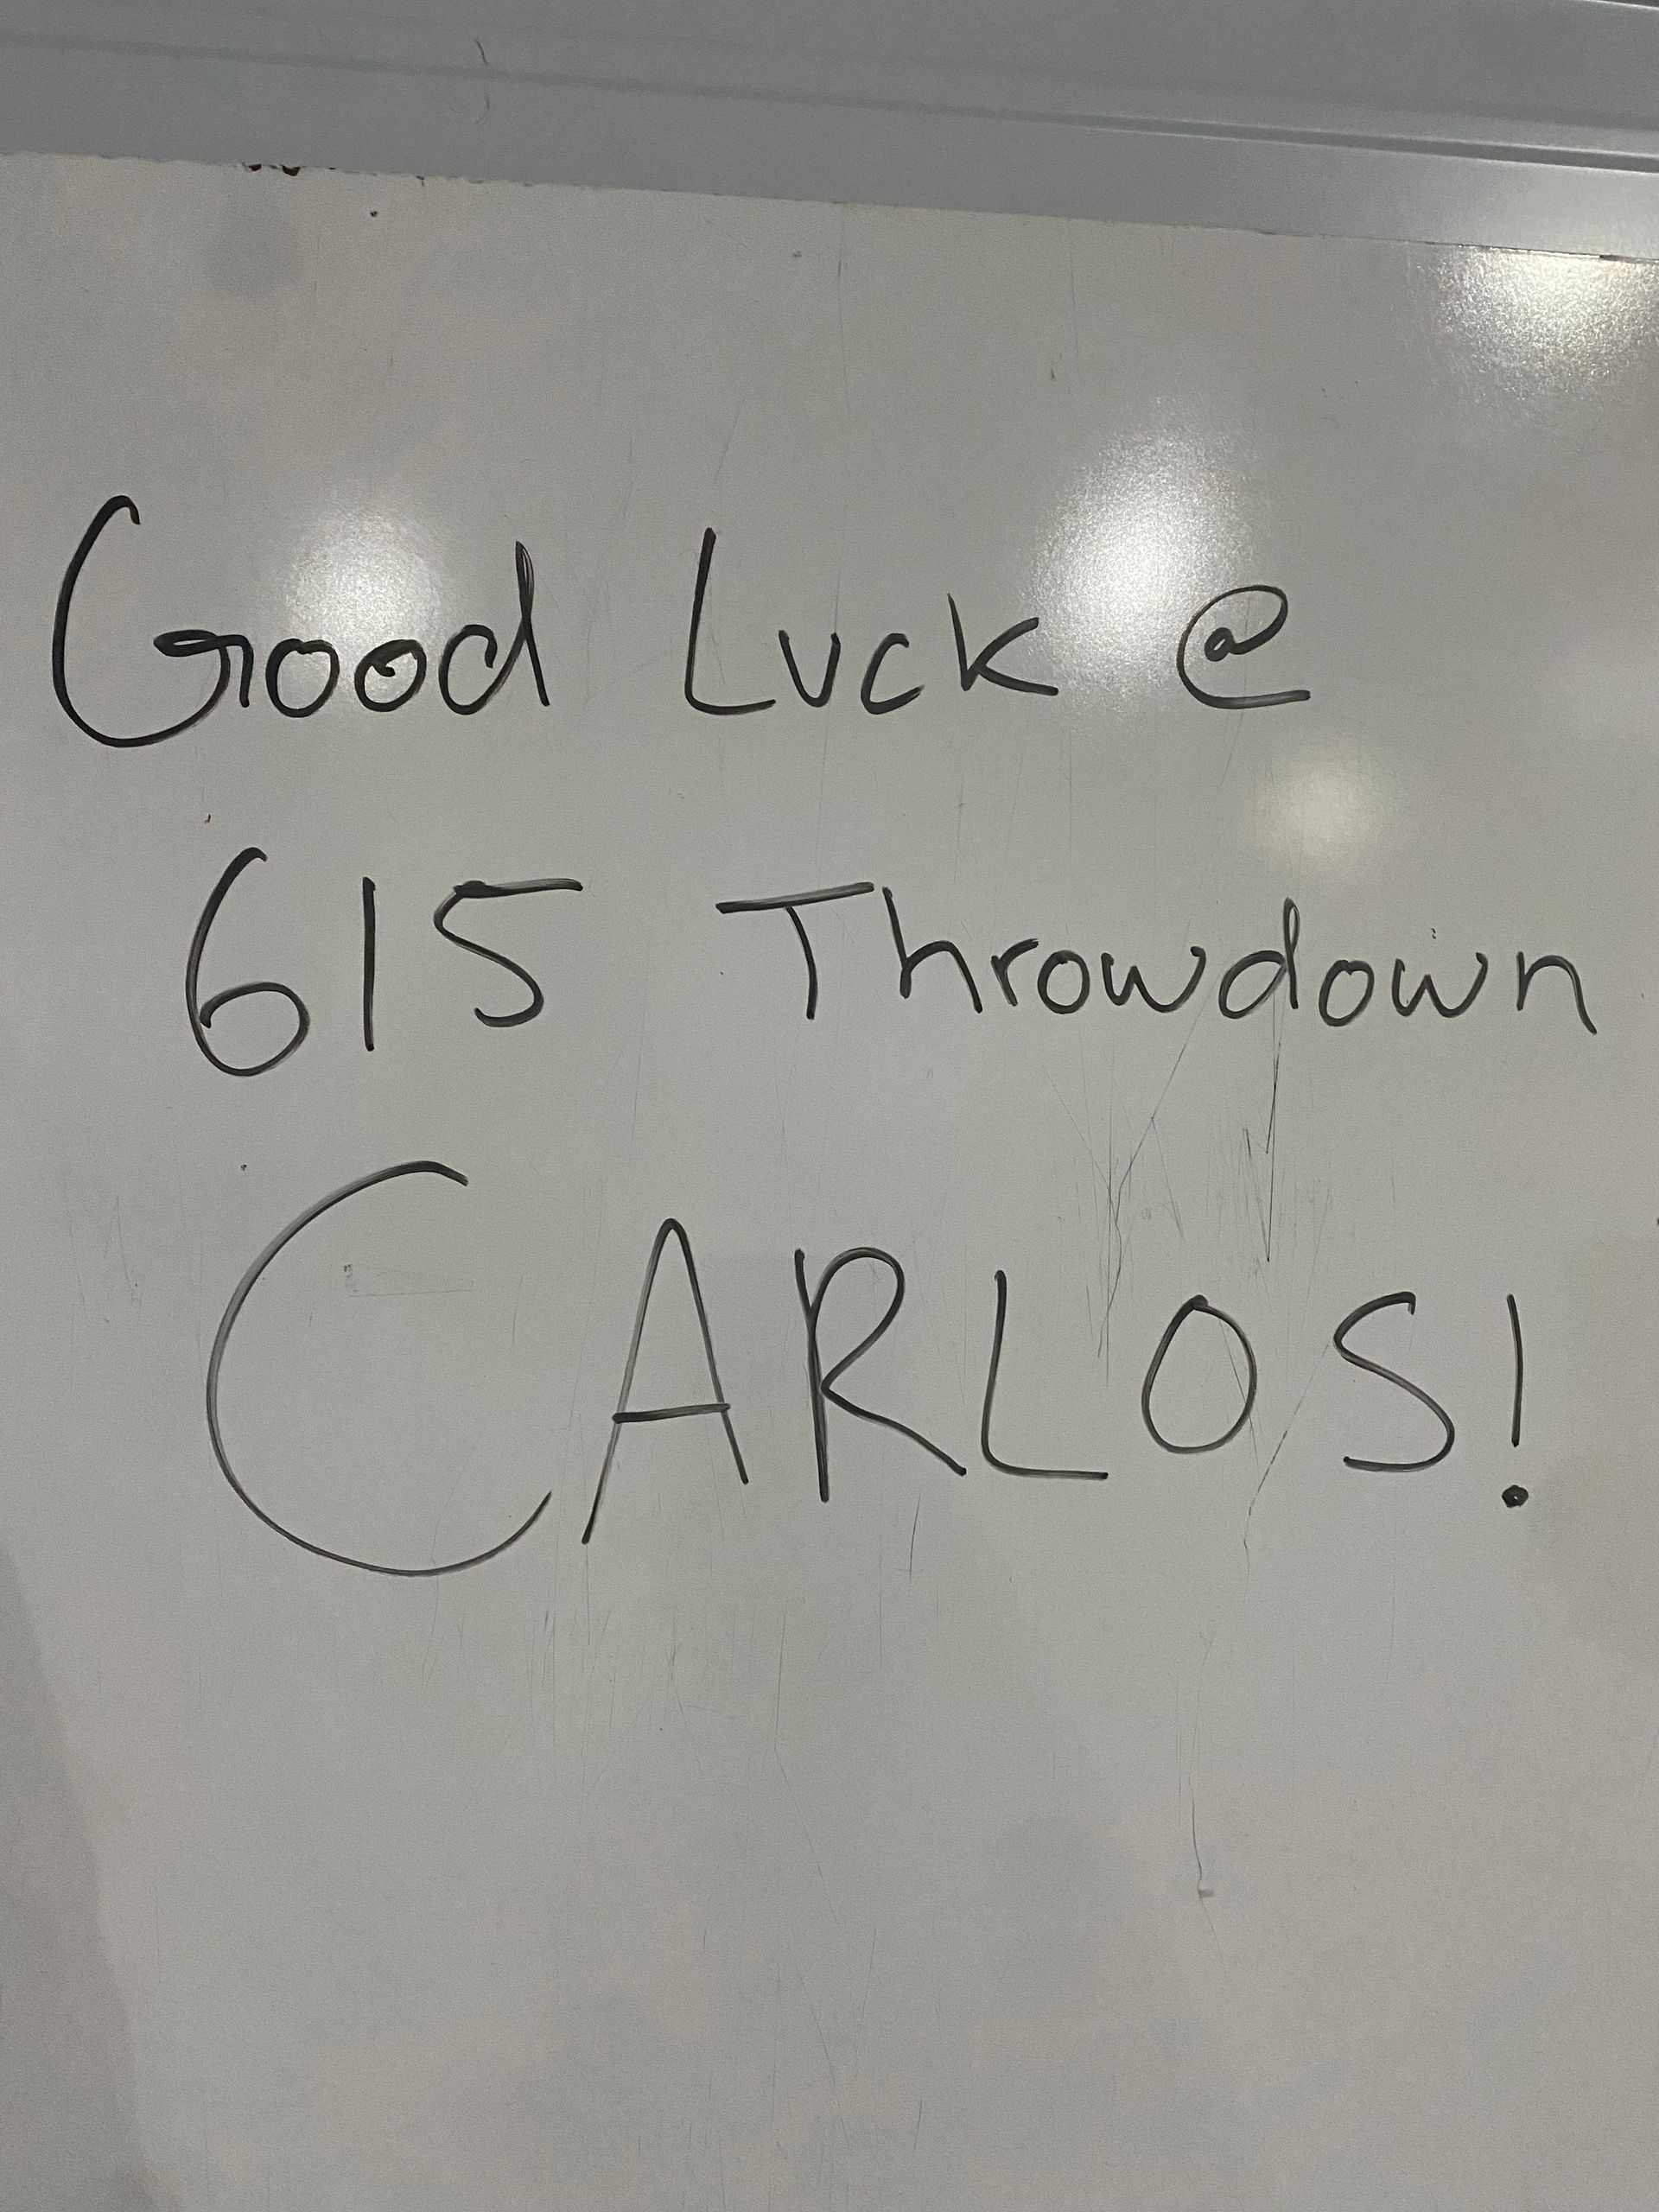 Good Luck @
615 Throwdown
CARLOS!